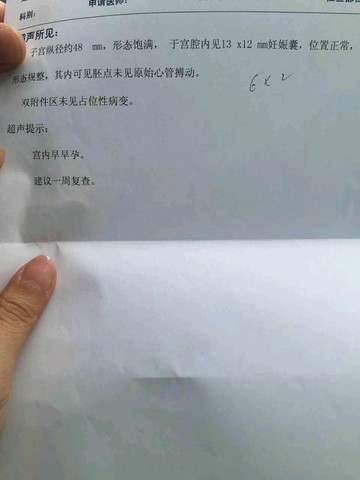 科别:
申请医师:
超声所见:
子宫纵径约48 mm,形态饱满, 于宫腔内见13 x12 mm妊娠囊,位置正常,
形态规整,其内可见胚点未见原始心管搏动。
6 x 2
双附件区未见占位性病变。
超声提示:
宫内早早孕。
建议一周复查。